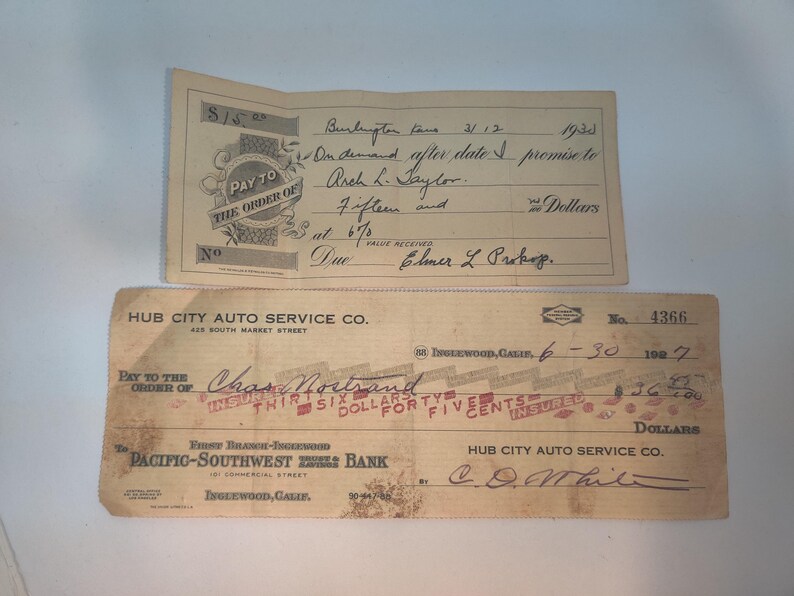 $15.00
Burlington Kans 3/12 1930
On demand after date I promise to
PAY TO
THE ORDER OF
Arch L. Taylor.
Fifteen and no/100 Dollars
at 6%
VALUE RECEIVED
No
Due Elmer L Prokop.
HUB CITY AUTO SERVICE CO.
425 SOUTH MARKET STREET
MEMBER
FEDERAL RESERVE
SYSTEM
No. 4366
88 INGLEWOOD, CALIF. 6-30 1927
PAY TO THE
ORDER OF Chas Nostrand $36 45/100
INSURED THIRTY SIX DOLLARS FORTY FIVE CENTS INSURED
DOLLARS
To FIRST BRANCH-INGLEWOOD
PACIFIC-SOUTHWEST TRUST & SAVINGS BANK
101 COMMERCIAL STREET
INGLEWOOD, CALIF.
90-447-88
HUB CITY AUTO SERVICE CO.
BY C. D. White
CENTRAL OFFICE
LOS ANGELES